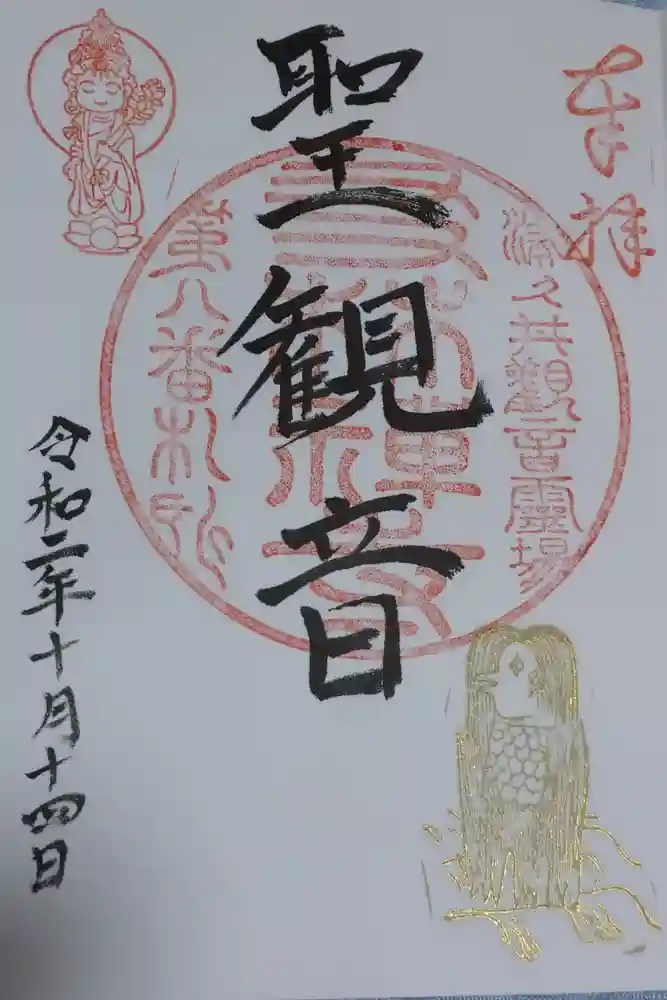 奉拝
津久井観音霊場
聖観音
第八番札所
令和二年十月十四日